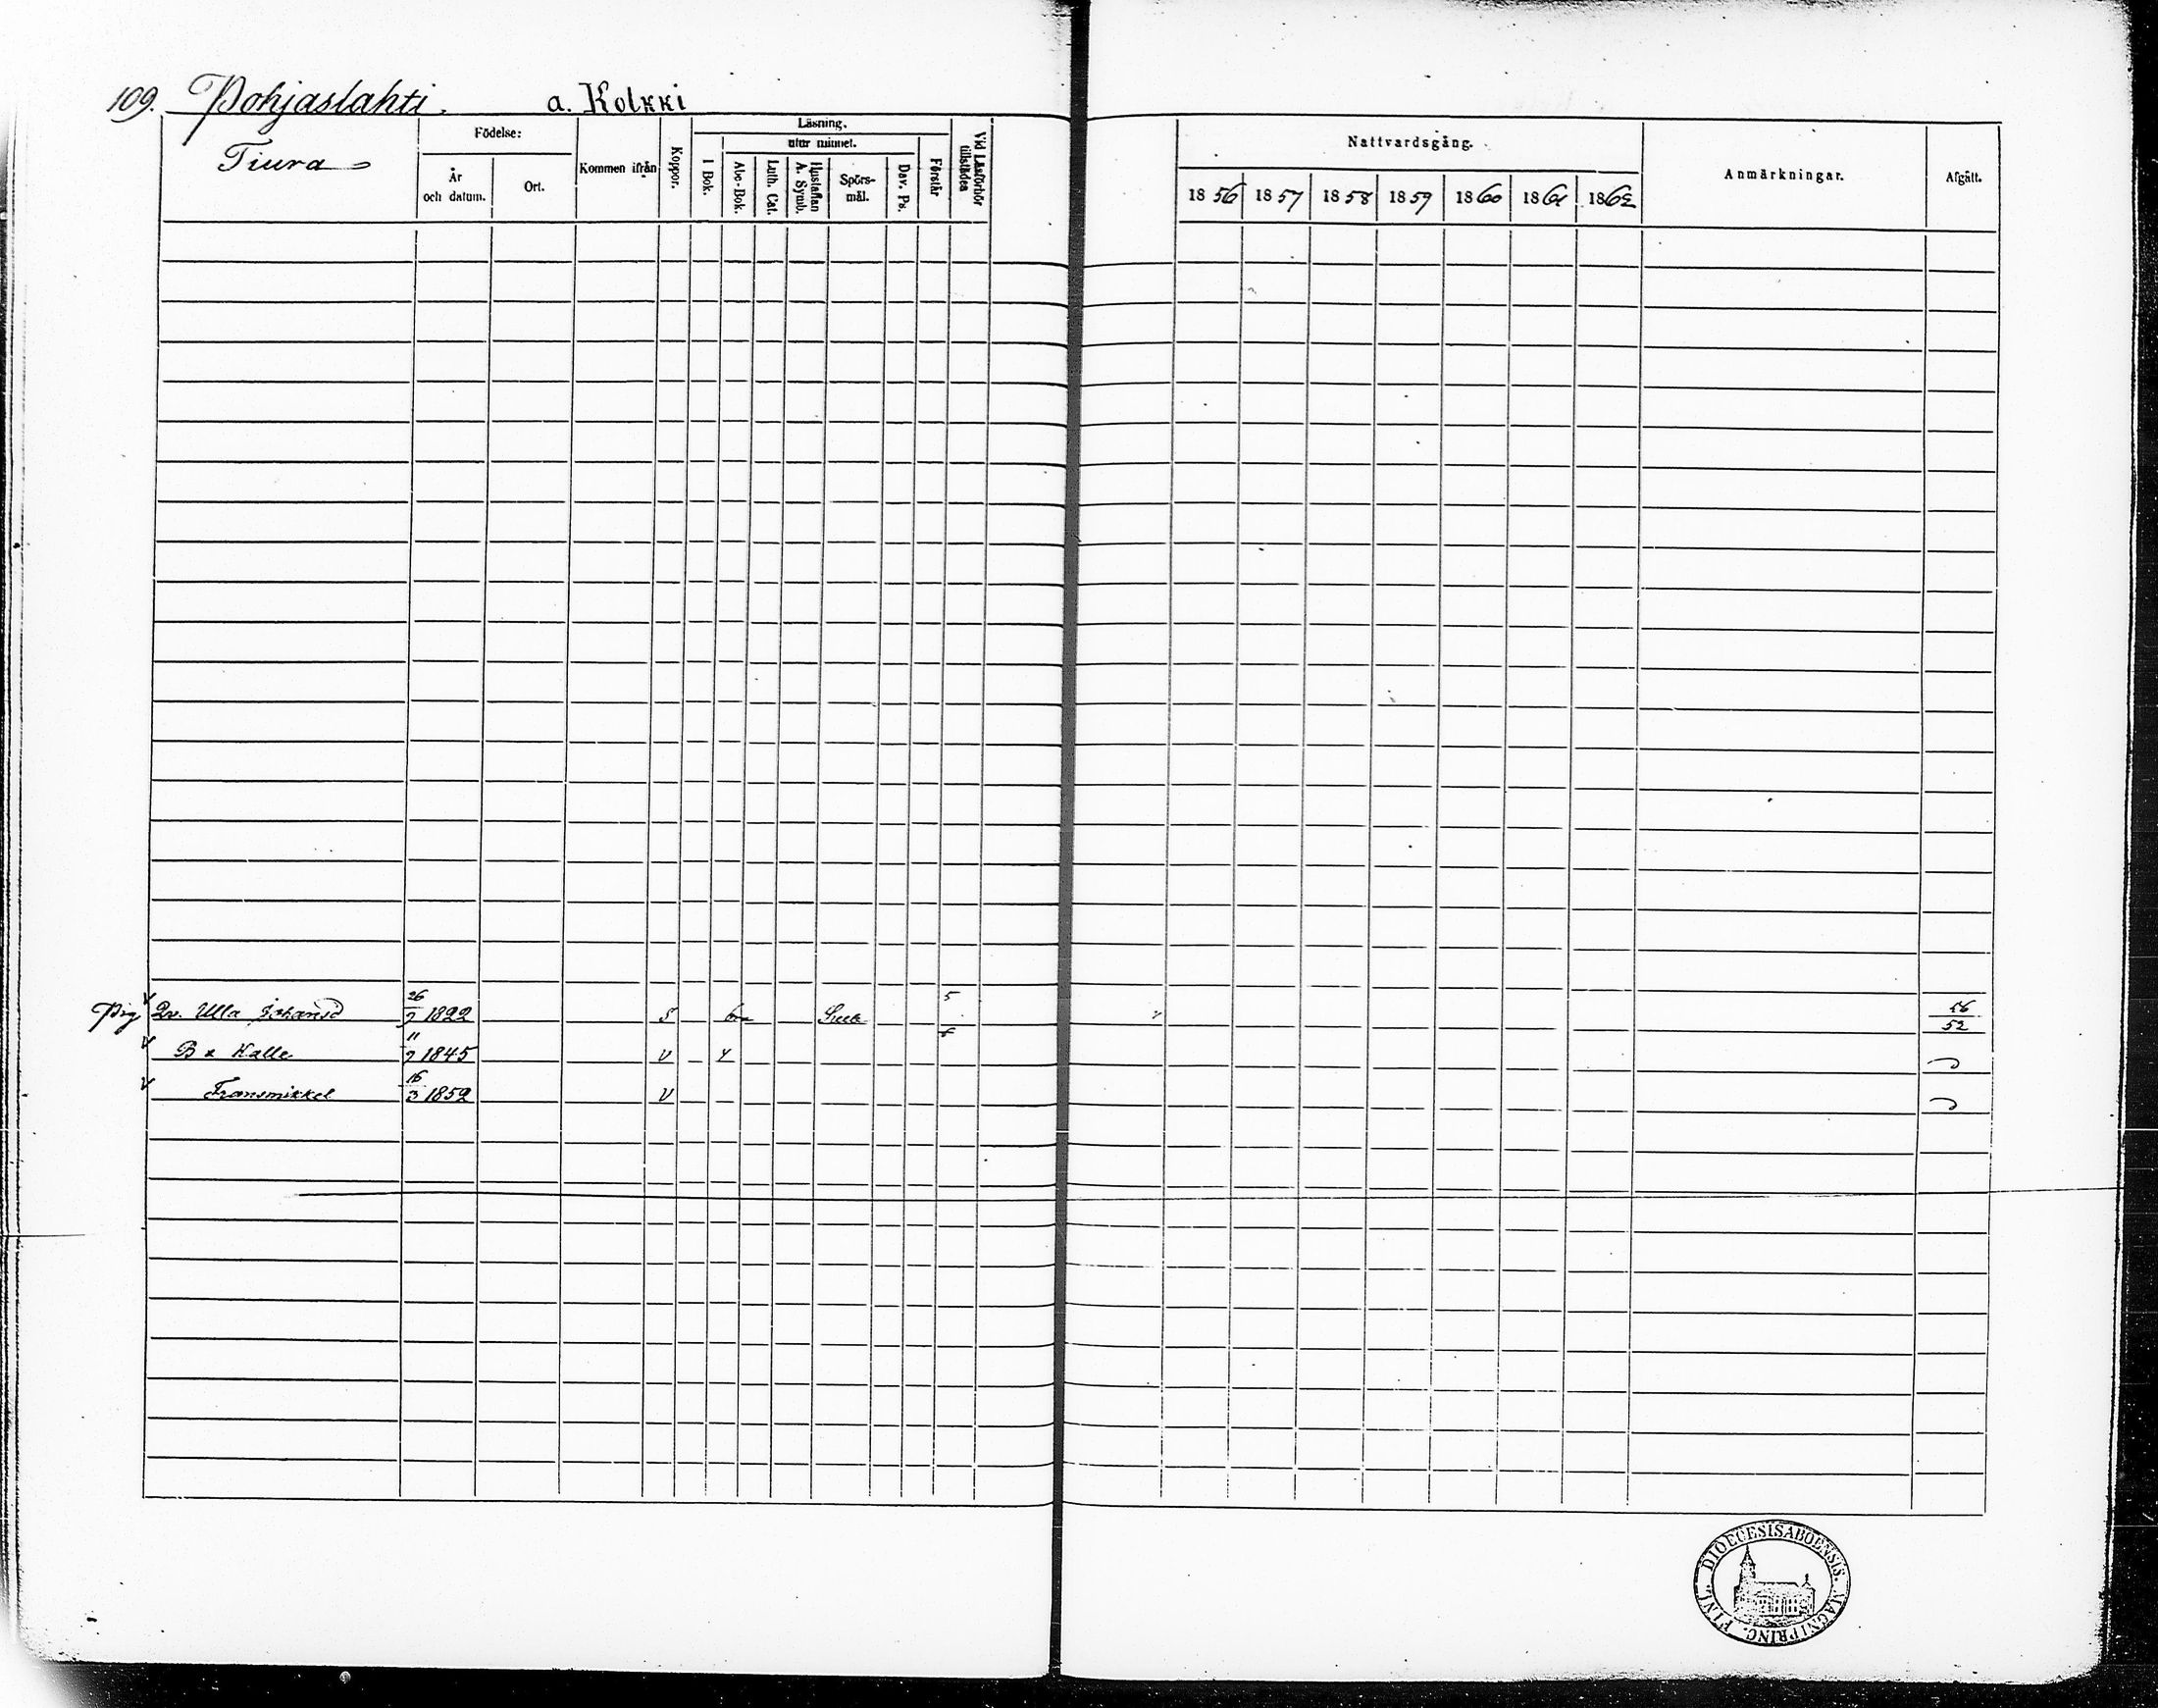 109. Pohjaslahti. a. Kolkki
Tiura
Födelse:
År och datum.
Ort.
Kommen ifrån
Koppor.
Läsning.
utur minnet.
I Bok.
Abc-Bok.
Luth. Cat.
Hustaflan A. Symb.
Spörs-mål.
Dav. Ps.
Förstår
Vid Läsförhör tillstädes
Nattvardsgång.
1856 1857 1858 1859 1860 1861 1862
Anmärkningar.
Afgått.
Pig Dr. Ulla Johansd 26/7 1822 S 5 56/52
B x Kalle 11/7 1845 v
Fransmikkel 16/3 1852 v
DIOECESIS ABOENSIS. MAGNI PRINC. FINL.